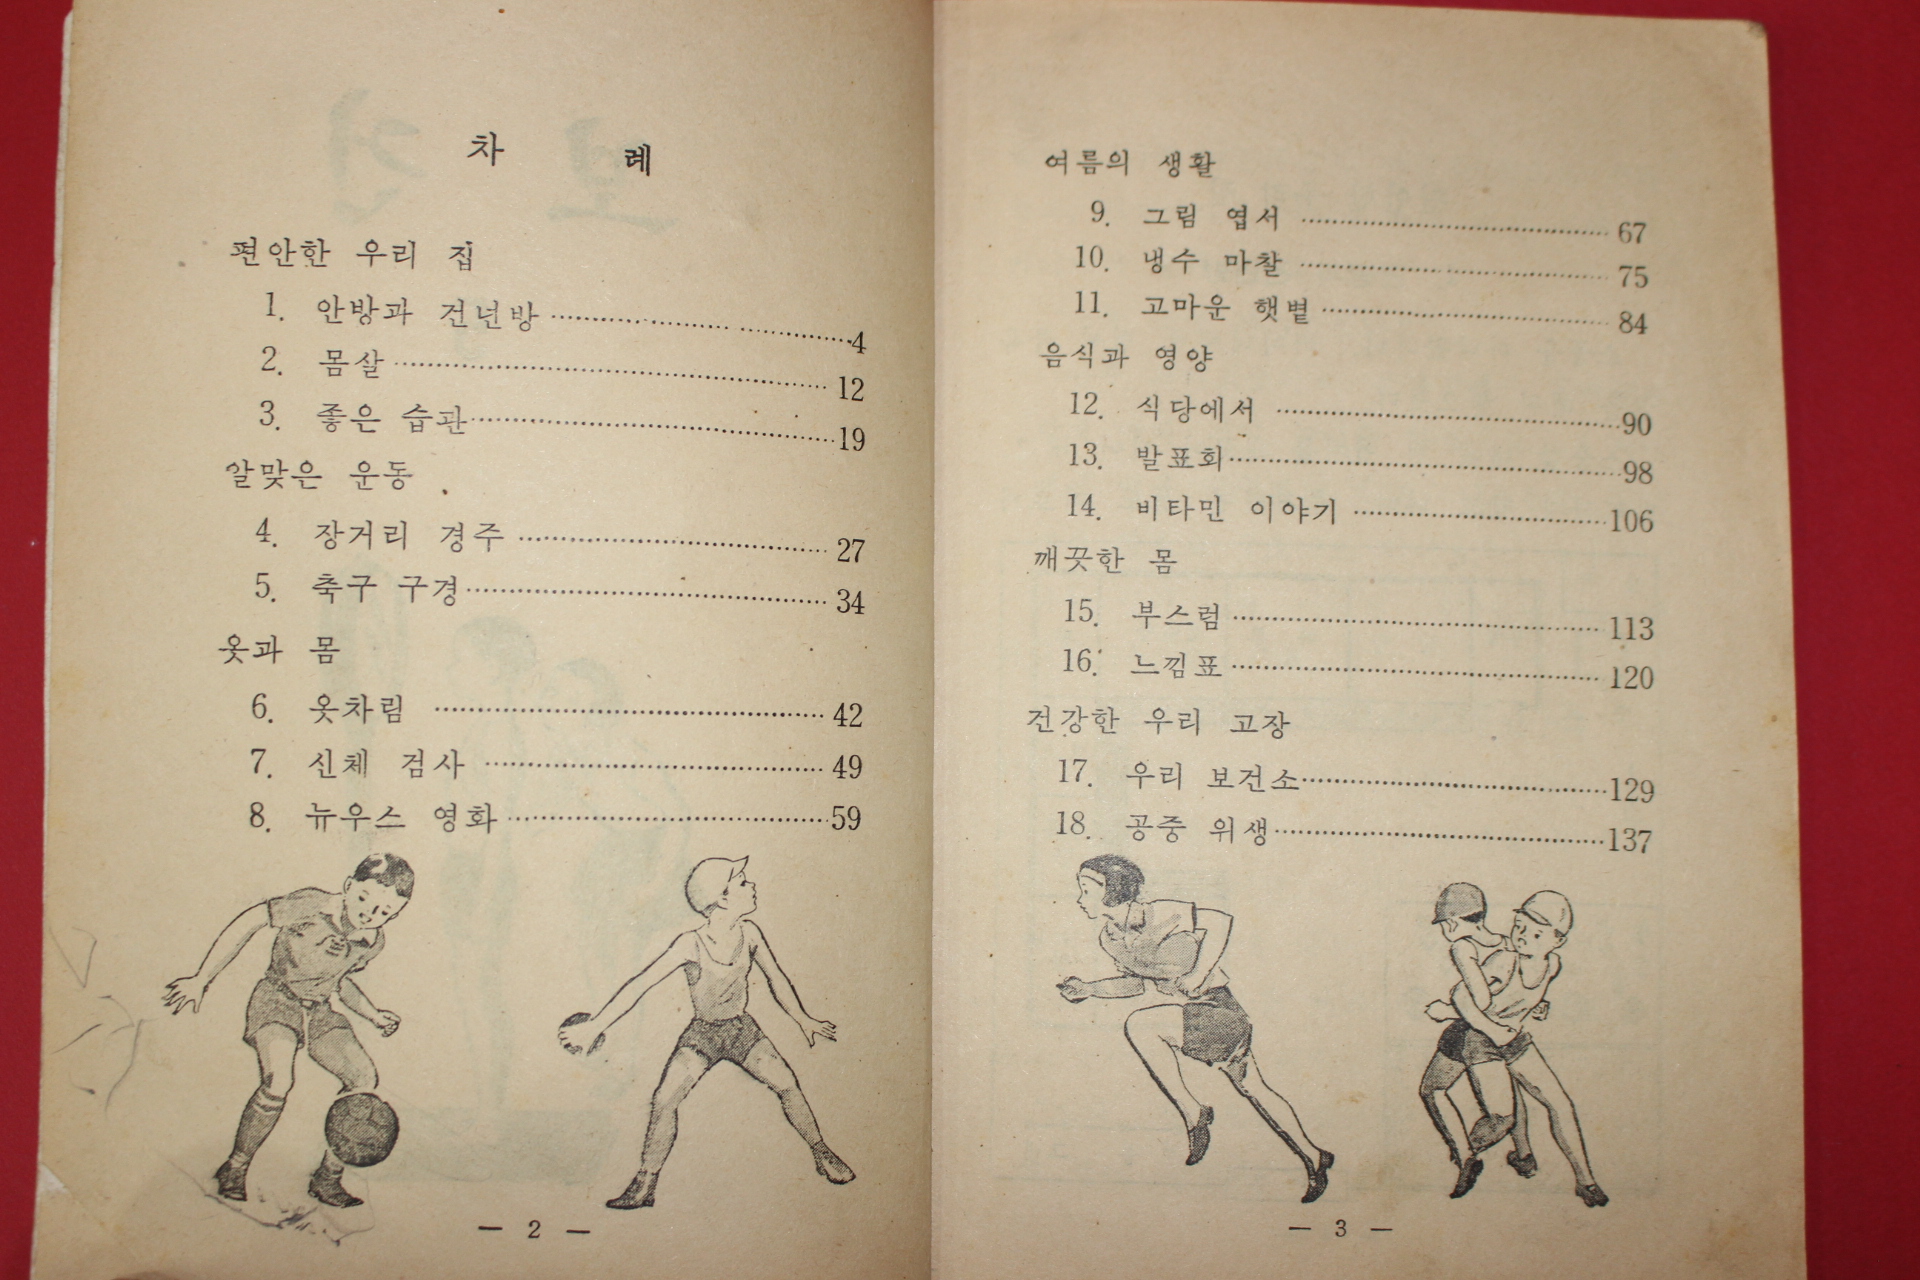 차 례
편안한 우리 집
1. 안방과 건넌방 ·················· 4
2. 몸살 ·················· 12
3. 좋은 습관 ·················· 19
알맞은 운동
4. 장거리 경주 ·················· 27
5. 축구 구경 ·················· 34
옷과 몸
6. 옷차림 ·················· 42
7. 신체 검사 ·················· 49
8. 뉴우스 영화 ·················· 59
— 2 —
여름의 생활
9. 그림 엽서 ·················· 67
10. 냉수 마찰 ·················· 75
11. 고마운 햇볕 ·················· 84
음식과 영양
12. 식당에서 ·················· 90
13. 발표회 ·················· 98
14. 비타민 이야기 ·················· 106
깨끗한 몸
15. 부스럼 ·················· 113
16. 느낌표 ·················· 120
건강한 우리 고장
17. 우리 보건소 ·················· 129
18. 공중 위생 ·················· 137
— 3 —